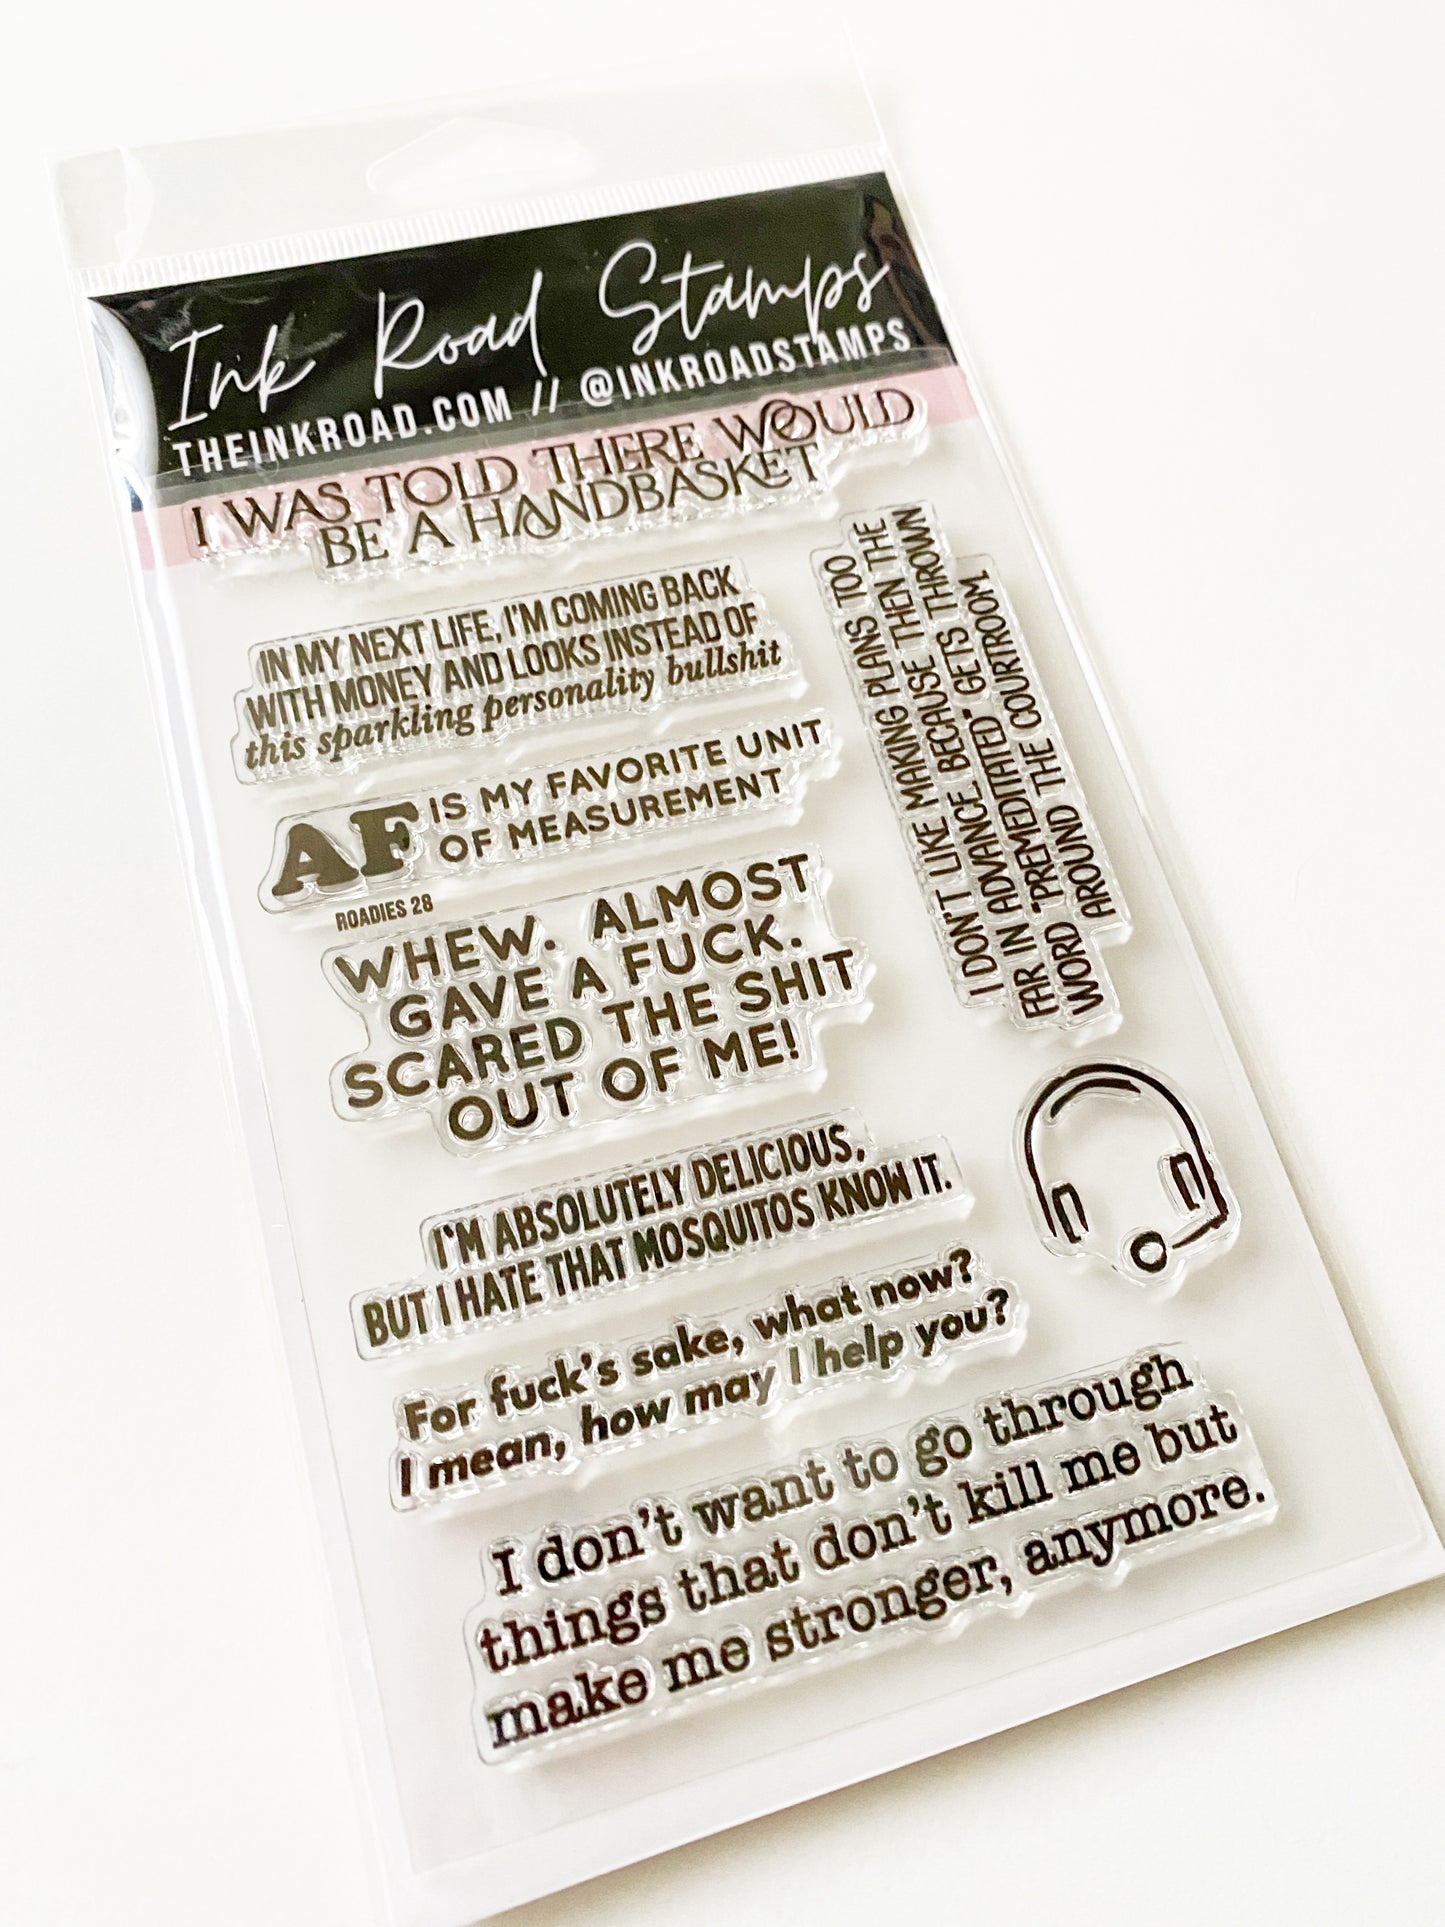 Ink Road Stamps
THEINKROAD.COM // @INKROADSTAMPS
I WAS TOLD THERE WOULD
BE A HANDBASKET
IN MY NEXT LIFE, I'M COMING BACK
WITH MONEY AND LOOKS INSTEAD OF
this sparkling personality bullshit
AF IS MY FAVORITE UNIT
OF MEASUREMENT
ROADIES 28
I DON'T LIKE MAKING PLANS TOO
FAR IN ADVANCE. BECAUSE THEN THE
WORD "PREMEDITATED" GETS THROWN
AROUND THE COURTROOM.
WHEW. ALMOST
GAVE A FUCK.
SCARED THE SHIT
OUT OF ME!
I'M ABSOLUTELY DELICIOUS,
BUT I HATE THAT MOSQUITOS KNOW IT.
For fuck's sake, what now?
I mean, how may I help you?
I don't want to go through
things that don't kill me but
make me stronger, anymore.